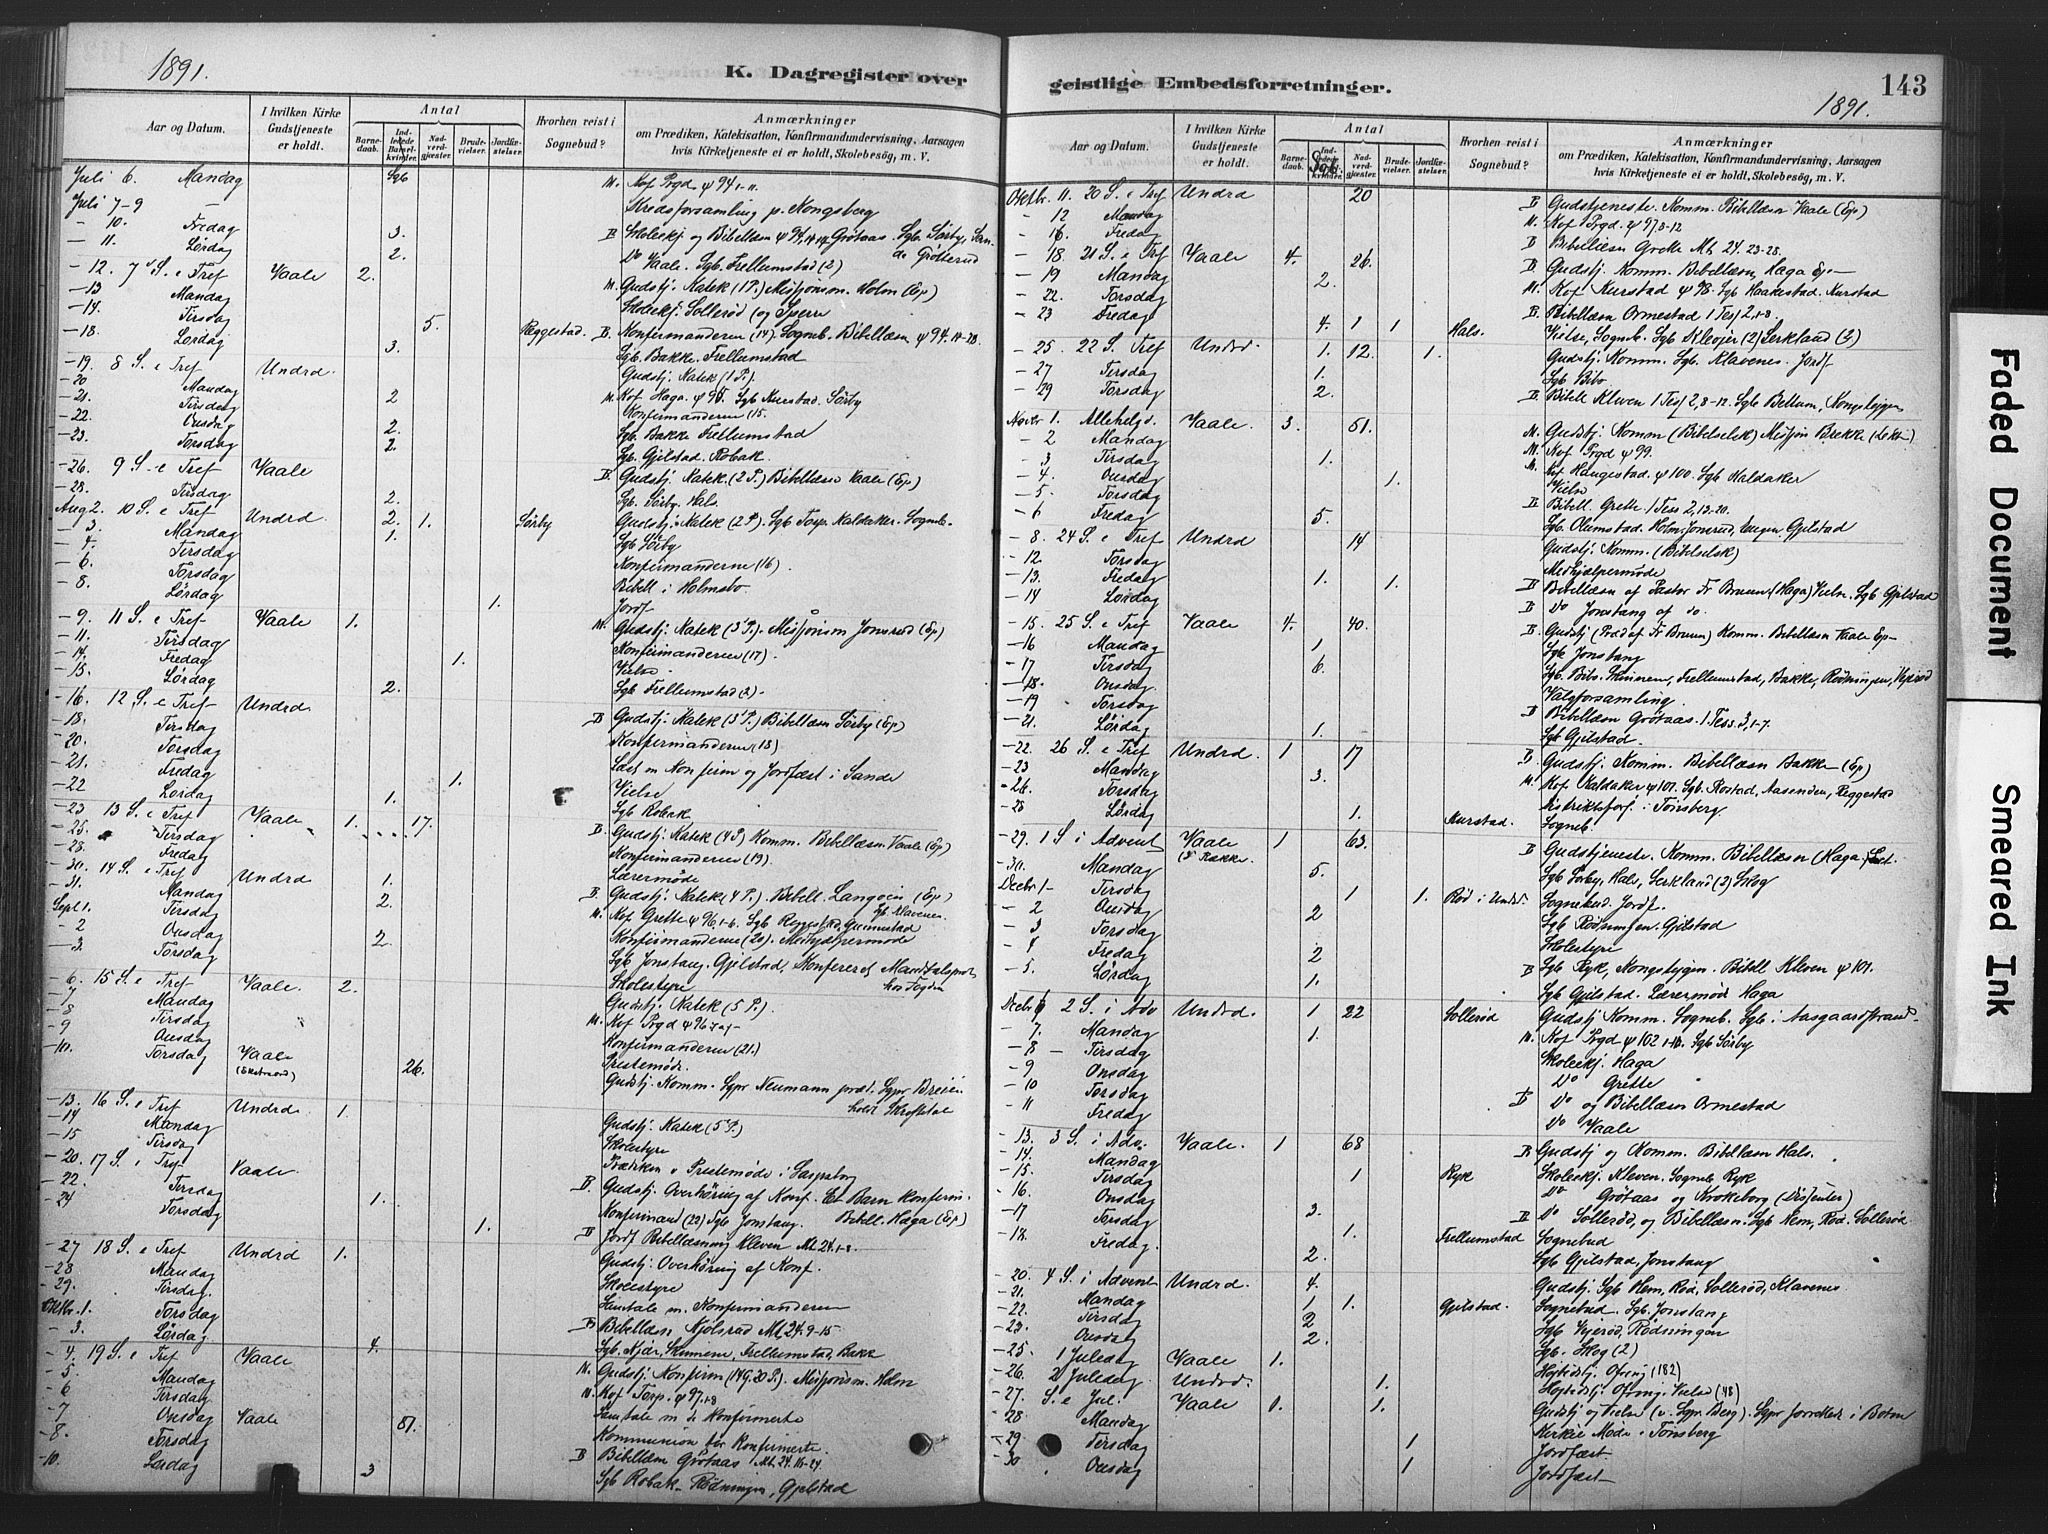 1891.
K. Dagregister over
Aar og Datum.
I hvilken Kirke Gudstjeneste er holdt.
Antal
Barnedaab.
Indledede Barselkvinder.
Nadverdgjester.
Brudevielser.
Jordfæstelser.
Hvorhen reist i Sognebud?
Anmærkninger
om Prædiken, Katekisation, Konfirmandundervisning, Aarsagen
hvis Kirketjeneste ei er holdt, Skolebesøg, m. V.
Juli 6. Mandag Sgb M. Kof Prgd ψ 94 1-11.
Juli 7-9 – Kredsforsamling p. Kongsberg
- 10. Fredag 3. B Skolekj og Bibellæsn ψ 94, Grötaas. Sgb. Sörby, Sem
- 11. Lørdag 2. Do Vaale. Sgb. Frellumstad (2) de Grötterud
- 12. 7 S. e Tref Vaale 2. M. Gudstj. Katek (1 P.) Misjonsm. Holm (Ep)
- 13 Mandag Skolekj. Sollerød (og Sperre
- 14. Tirsdag 5. Reggestad. B. Konfirmanderne (14). Sogneb. Bibellæsn ψ 94.
- 18. Lørdag 3. Sgb. Bakke. Frellumstad
- 19. 8 S. e Tref Undrd. Gudstj. Katek (1 P.)
- 20 Mandag 2 M. Kof Haga. Sgb Kurstad. Sörby
- 21. Tirsdag Konfirmanderne (15.
- 22. Onsdag 2. Sgb. Bakke Frellumstad
- 23. Torsdag 2. Sgb. Gjelstad. Robak.
- 26. 9 S. e Tref Vaale B. Gudstj. Katek. (2 P.) Bibellæsn Vaale (Ep)
- 28. Tirsdag 2. Sgb. Sörby. Hals.
Aug 2. 10 S. e Tref Undrd 2. 1. Sörby Gudstj. Katek (2 P). Sgb Torp. Kaldaker. Sogneb.
- 3. Mandag 1. Sgb Sörby
- 4. Tirsdag Konfirmanderne (16).
- 6. Torsdag Bibell i Holmsbo.
- 8. Lørdag 1. Jordf
- 9. 11 S. e Tref Vaale 1. M. Gudstj. Katek (3 P.). Misjonsm Jonsrud (Ep)
- 11. Tirsdag Konfirmanderne (17).
- 14. Fredag 1. Vielse.
- 15. Lørdag 2. Sgb Frellumstad (2).
- 16. 12 S. e Tref Undrd. B Gudstj. Katek (3 P.) Bibellæsn Sörby (Ep)
- 18. Tirsdag Konfirmanderne (18)
- 20. Torsdag Læst m Konfirm og Jordfæst i Sande
- 21. Fredag 1. Vielse
- 22 Lørdag 1. Sgb Robak
- 23 13 S. e Tref Vaale 1. 17. B. Gudstj. Katek (4 P) Komm. Bibellæsn. Vaale (Ep)
- 25. Tirsdag Konfirmanderne (19).
- 28. Fredag Lærermøde
- 30. 14 S. e Tref Undrd 1. B. Gudstj. Katek (4 P.). Bibell. Langøen (Ep)
- 31. Mandag 2. M. Kof Grette ψ 96.1-6. Sgb Reggestad, Gunnestad Sgb. Klavenes
Sept 1. Tirsdag Konfirmanderne (20). Medhjælpermøde
- 2 Onsdag 2. Sgb Jonstang. Gjelstad, Konfereret Mandtalsprot
- 3. Torsdag Skolestyre hos Fogden
- 6. 15 S. e Tref Vaale. 2. Gudstj. Katek (5 P.)
- 7 Mandag M. Kof Prgd ψ 96
- 8 Tirsdag Konfirmanderne (21.)
- 9 Onsdag Prestemøde.
- 10. Torsdag Vaale (Ekstraord) 26. Gudstj. Komm. Sgpr Neumann præd. Sgpr Breien holdt Skriftetale
- 13. 16 S. e Tref Undrd 1. Gudstj. Katek (5 P.)
- 14 Mandag Skolestyre
- 15 Tirsdag Prædiken v Prestemøde i Sarpsborg
- 20. 17 S. e Tref Vaale B. Gudstj. Overhøring af Konf. Et Barn konfirm.
- 22. Tirsdag 1. Konfirmand (22) Sgb Jonstang. Bibell. Haga (Ep)
- 24 Torsdag 1. B Jordf Bibellæsning Kleven Mt 24.1-8.
- 27 18 S. e Tref Undrd 1. Gudstj. Overhøring af Konf.
- 28 Mandag Skolestyre
- 29. Tirsdag. Samtale m. Konfirmanderne
Oktbr. 1. Torsdag B Bibellæsn Mt 24.9-15
- 3. Lørdag. 4. Sgb. Skinnene, Frellumstad, Bakke
- 4. 19 S. e Tref Vaale M. Gudstj. Konfirm (14 G. 20 P.). Misjonsm. Holm
- 5 Mandag M. Kof Torp. ψ 97.1-8
- 6 Tirsdag Samtale m de konfirmerte
- 7 Onsdag Vaale 81. Kommunion for konfirmerte.
- 8. Torsdag B Bibellæsn Grötaas Mt. 24.16-24
- 10. Lørdag 3 Sgb Robak. Rødningen, Gjelstad
geistlige Embedsforretninger.
143
1891.
Aar og Datum.
I hvilken Kirke Gudstjeneste er holdt.
Antal
Barnedaab.
Indledede Barselkvinder.
Sgb.
Nadverdgjester.
Brudevielser.
Jordfæstelser.
Hvorhen reist i Sognebud?
Anmærkninger
om Prædiken, Katekisation, Konfirmandundervisning, Aarsagen
hvis Kirketjeneste ei er holdt, Skolebesøg, m. V.
Oktbr. 11. 20 S. e Tref Undrd 20 B Gudstjeneste. Komm. Bibellæsn Vaale (Ep)
- 12 Mandag M. Kof Prgd. ψ 97,8-12
- 16. Fredag B Bibellæsn Grette Mt. 24. 23-28.
- 18. 21 S. e Tref Vaale 4. 26. B. Gudstj. Komm. Bibellæsn, Haga Ep
- 19 Mandag 2. M. Kof Kurstad ψ 98. Sgb Haakestad. Kurstad
- 22. Torsdag B. Bibellæsn Ormestad 1 Tess 2,1-8.
- 23 Fredag 4. 1 1 Hals. Vielse, Sogneb. Sgb Klevjer (2) Serkland (3)
- 25. 22 S. Tref Undrd. 1. 12. 1. Gudstj. Komm. Sgb. Klavenes. Jordf
- 27 Tirsdag 1. Sgb Bibo
- 29 Torsdag 2. B Bibell Kleven 1 Tess 2,8-12. Sgb Bettum, Kongsbyggen
Novbr 1. Allehelgd. Vaale 3. 51. M. Gudstj. Komm (Bibelselsk) Misjon Brekke (Lekt.)
- 2 Mandag M. Kof Prgd ψ 99.
- 3 Tirsdag 1. M Kof Haugestad. ψ 100. Sgb Kaldaker
- 4. Onsdag 1. Vielse
- 5. Torsdag B Bibell. Grette 1 Tess 2,13-20.
- 6 Fredag 5. Sgb. Olumstad. Holm, Jonsrud, Gjelstad
- 8. 24 S. e Tref Undrd 14 Gudstj. Komm. (Bibelselsk)
- 12 Torsdag Medhjælpermøde
- 13. Fredag 1. 1. B Bibellæsn af Pastor Fr Bruun (Haga) Vielse. Sgb Gjelstad
- 14 Lørdag B Do Jonstang af do.
- 15. 25 S. e Tref Vaale 4. 40. B. Gudstj (Præd af Fr Bruun) Komm. Bibellæsn Vaale Ep
- 16 Mandag 1. Sgb Jonstang
- 17 Tirsdag 6. Sgb. Bibo. Skinnem, Frellumstad, Bakke, Rødningen, Vejerød
- 18. Onsdag Valgforsamling
- 19 Torsdag B Bibellæsn Grötaas. 1 Tess. 3,1-7.
- 21. Lørdag 1. Sgb Gjelstad.
- 22. 26 S. e Tref Undrd. 1 17 B. Gudstj. Komm. Bibellæsn Bakke (Ep)
- 23 Mandag 3. M. Kof Kaldaker ψ 101. Sgb. Rostad, Aasenden, Reggestad
- 26. Torsdag Distriktsfors i Tønsberg
- 28 Lørdag 1. Kurstad. Sogneb.
- 29. 1 S. i Advent Vaale (2 Rækker 1 63. B Gudstjeneste. Komm. Bibellæsn (Haga.
- 30. Mandag 5. Sgb Sörby, Hals, Serkland (2) Skog
Decbr 1 Tirsdag 1 1. Rød i Undrd. Sognebud. Jordf.
- 2 Onsdag 2 Sgb Rødningen. Gjelstad
- 3 Torsdag Skolestyre
- 4 Fredag 2 B Sgb Ryk, Kongsbyggen. Bibell Kleven ψ 101.
- 5. Lørdag 1. Sgb Gjelstad. Lærermød Haga
Decbr 6 2 S. i Adv Undrd. 1 22 Sollerød Gudstj Komm. Sogneb. Sgb i Aasgaardstrand
- 7. Mandag 1. M. Kof Prgd ψ 102 1-16. Sgb Sörby
- 8 – Tirsdag Skolekj. Haga
- 9 Onsdag Do Grette
- 10 Torsdag B Do og Bibellæsn Ormestad
- 11 Fredag Do Vaale
- 13. 3 S. i Adv. Vaale. 1 68 B Gudstj og Komm. Bibellæsn Hals.
- 14. Mandag Skolekj. Kleven. Sogneb Ryk
- 15. Tirsdag 1 Ryk Do Grötaas og Krokeborg (Dissenter)
- 16. Onsdag B Do Sollerød, og Bibellæsn. Sgb Hem, Rød. Sollerød
- 17 Torsdag 3. 1. Frellumstad Sognebud
- 18. Fredag. 2. Sgb Gjelstad, Jonstang
- 20. 4 S. i Advent Undrd. 4. Gudstj. Sgb Hem, Rød, Sollerød, Klavenes
- 21. Mandag 1 1. Gjelstad. Sognebud. Sgb. Jonstang
- 22. Tirsdag 2 Sgb Vejerød, Rødningen
- 23. Onsdag 2. Sgb. Skog (2)
- 25. 1 Juledag Vaale 1. Højtidstj. Ofring (182)
- 26. 2 Juledag. Undrd. 1. Højtidstj. Ofring. Vielse (48)
- 27. S. e Jul. Vaale 1. 1. Gudstj og Vielse (v. Sgpr. Berg). Sgpr forrettet i Botne
- 28 Mandag Kirkie Møde i Tønsberg
- 29 Tirsdag 1 Jordfæst.
- 30 Onsdag 1 Jordfæst
Faded Document
Smeared Ink